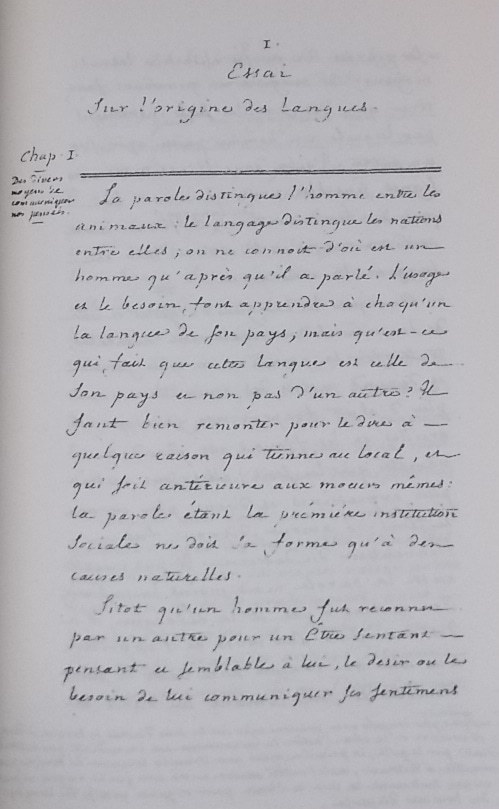 1.
Essai
Sur l'origine des Langues.
Chap. I.
Des divers
moyens de
communiquer
nos pensées.
La parole distingue l'homme entre les
animaux : le langage distingue les nations
entre elles ; on ne connoit d'où est un
homme qu'après qu'il a parlé. L'usage
et le besoin, font apprendre à chaqu'un
la langue de son pays ; mais qu'est-ce
qui fait que cette langue est celle de
son pays et non pas d'un autre ? Il
faut bien remonter pour le dire à —
quelque raison qui tienne au local, et
qui soit antérieure aux moeurs mêmes :
la parole étant la prémiére institution
sociale ne doit sa forme qu'à des
causes naturelles.
Sitot qu'un homme fut reconnu
par un autre pour un Être sentant —
pensant et semblable à lui, le desir ou le
besoin de lui communiquer ses sentimens